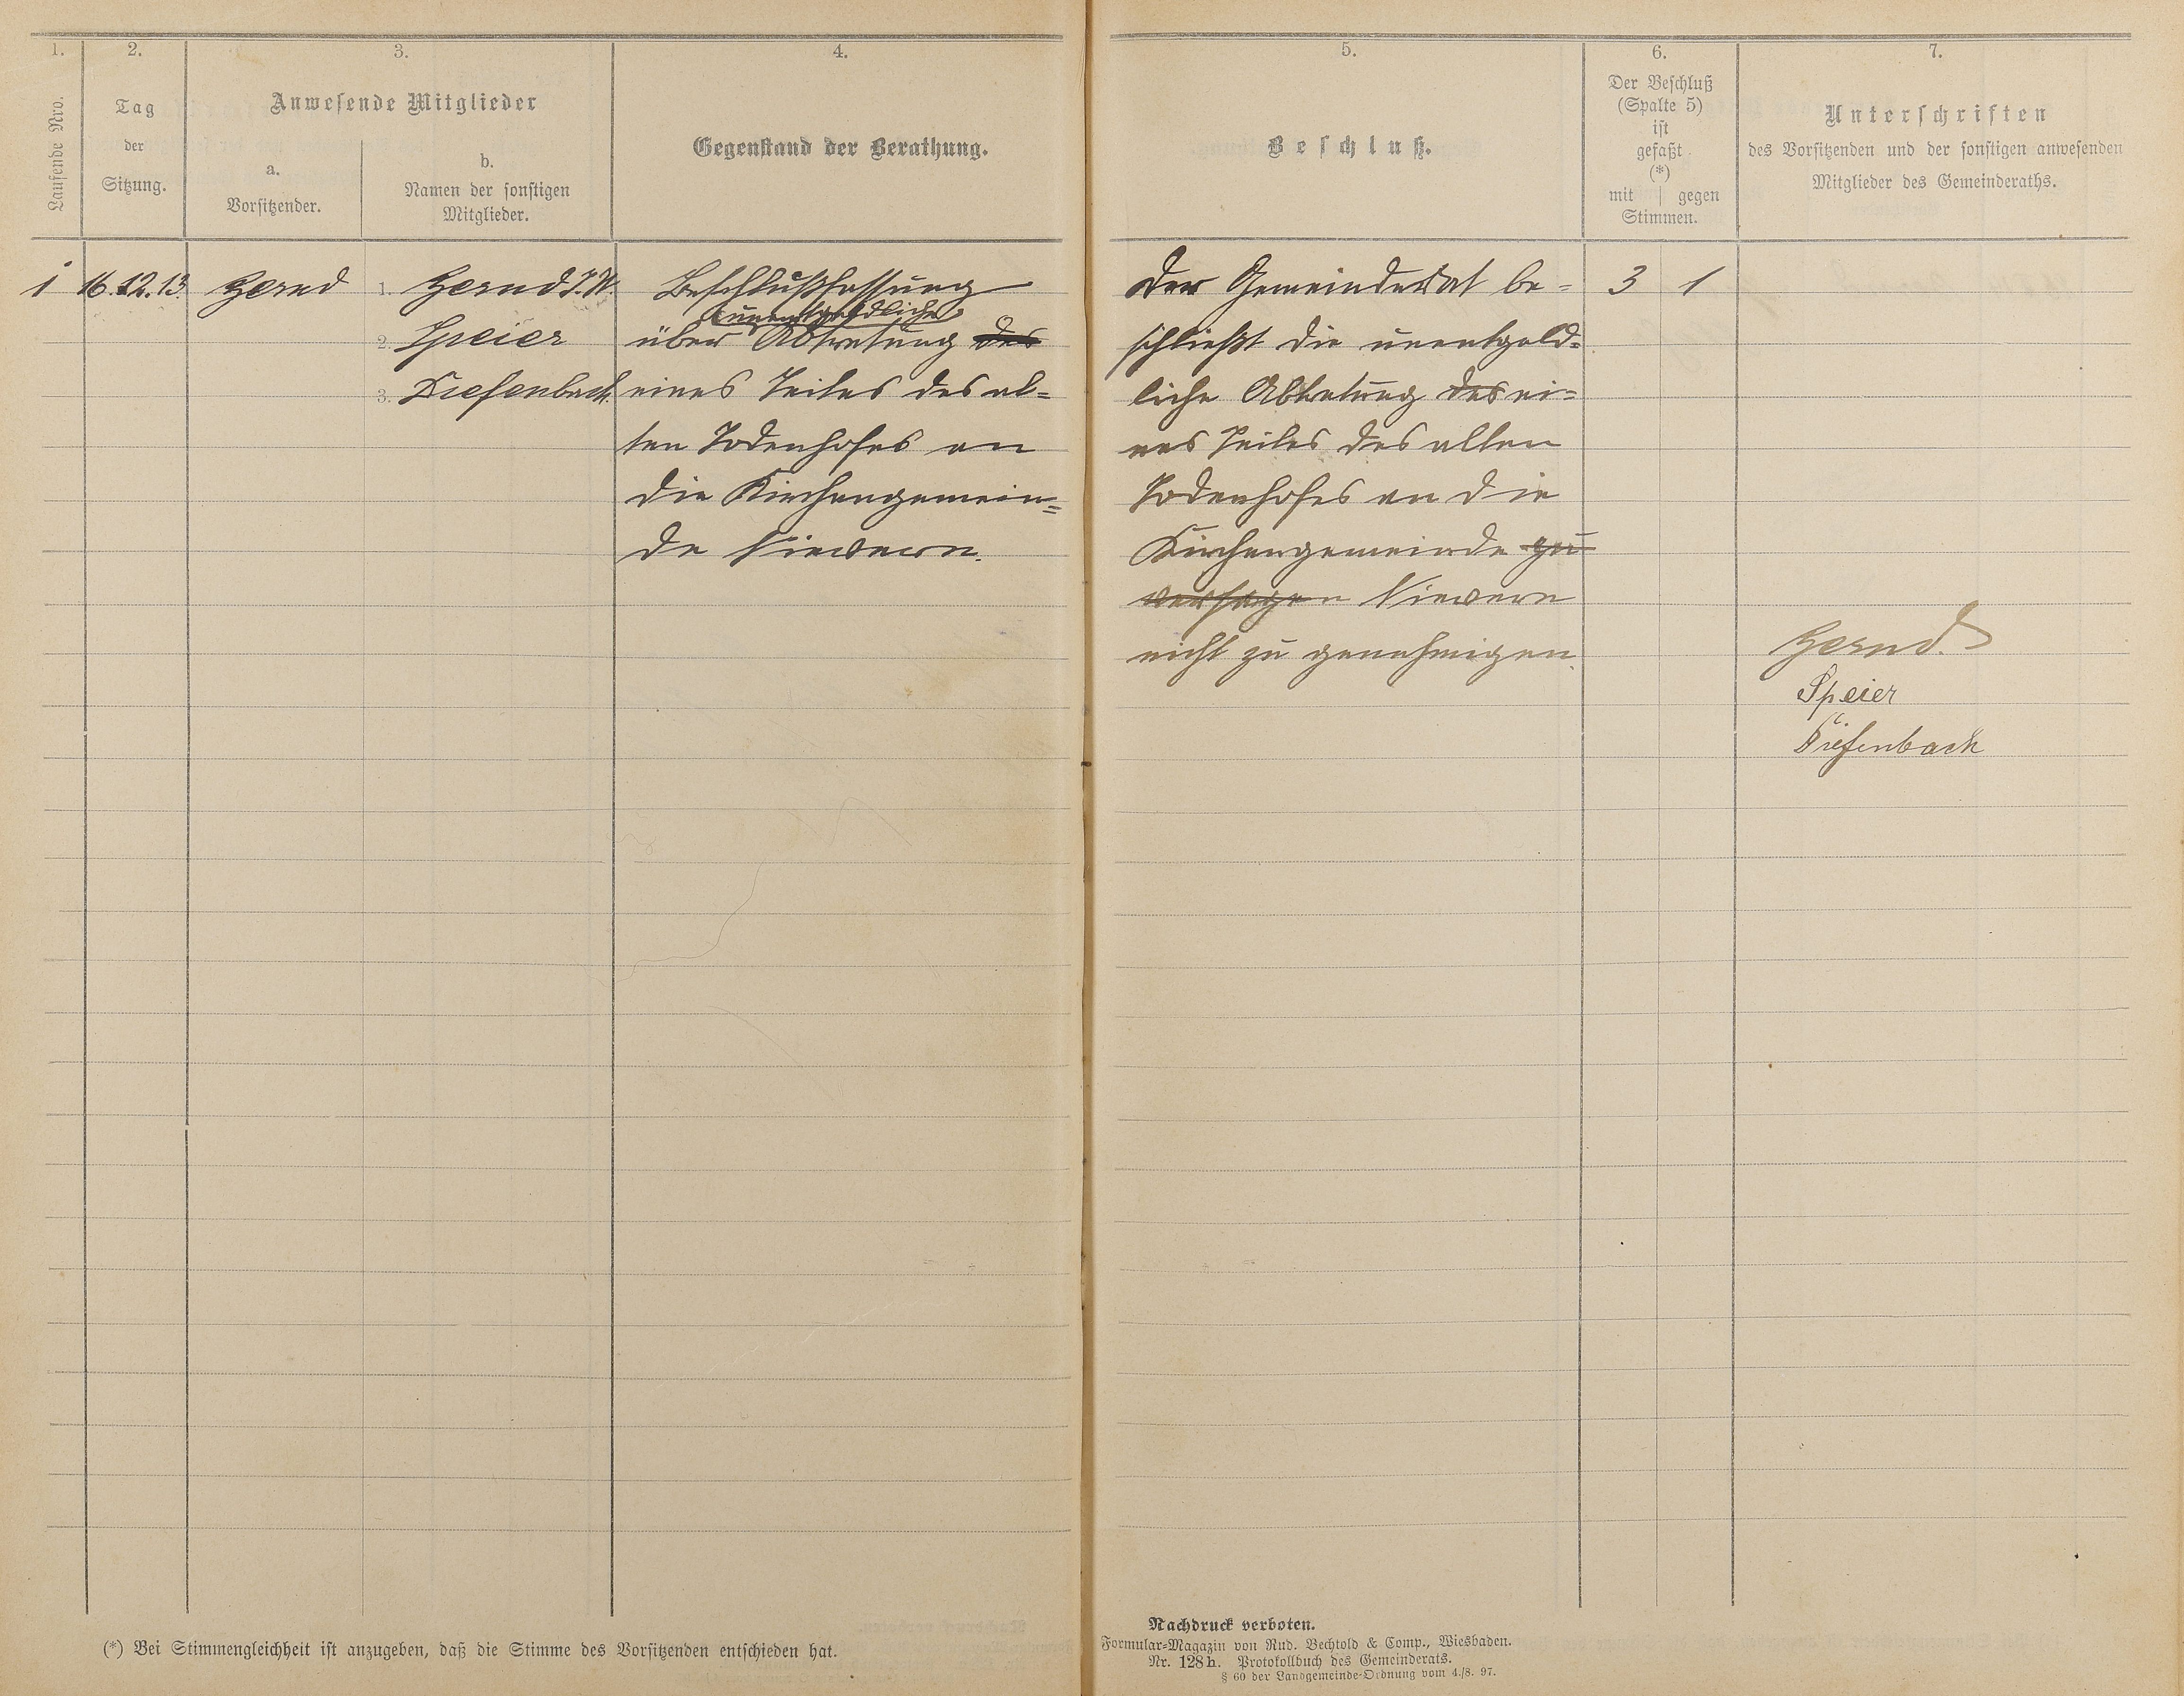 1.
2.
3.
4.
Laufende Nro.
Tag
der
Sitzung.
Anwesende Mitglieder
a.
Vorsitzender.
b.
Namen der sonstigen
Mitglieder.
Gegenstand der Berathung.
1 16.12.13. Gernd 1. Gernd J. W.
2. Speier
3. Diefenbach
Beschlußfassung
unentgeldliche
über Abtretung des
eines Teiles des al=
ten Todenhofes an
die Kirchengemein=
de Nievern.
(*) Bei Stimmengleichheit ist anzugeben, daß die Stimme des Vorsitzenden entschieden hat.
5.
6.
7.
Beschluß.
Der Beschluß
(Spalte 5)
ist
gefaßt
(*)
mit | gegen
Stimmen.
Unterschriften
des Vorsitzenden und der sonstigen anwesenden
Mitglieder des Gemeinderaths.
Der Gemeinderat be= 3 1
schließt die unentgeld=
liche Abtretung des ei=
nes Teiles des alten
Todenhofes an die
Kirchengemeinde zu
versagen Nievern
nicht zu genehmigen.
Gernd.
Speier
Diefenbach
Nachdruck verboten.
Formular=Magazin von Rud. Bechtold & Comp., Wiesbaden.
Nr. 128 h. Protokollbuch des Gemeinderats.
§ 60 der Landgemeinde=Ordnung vom 4./8. 97.